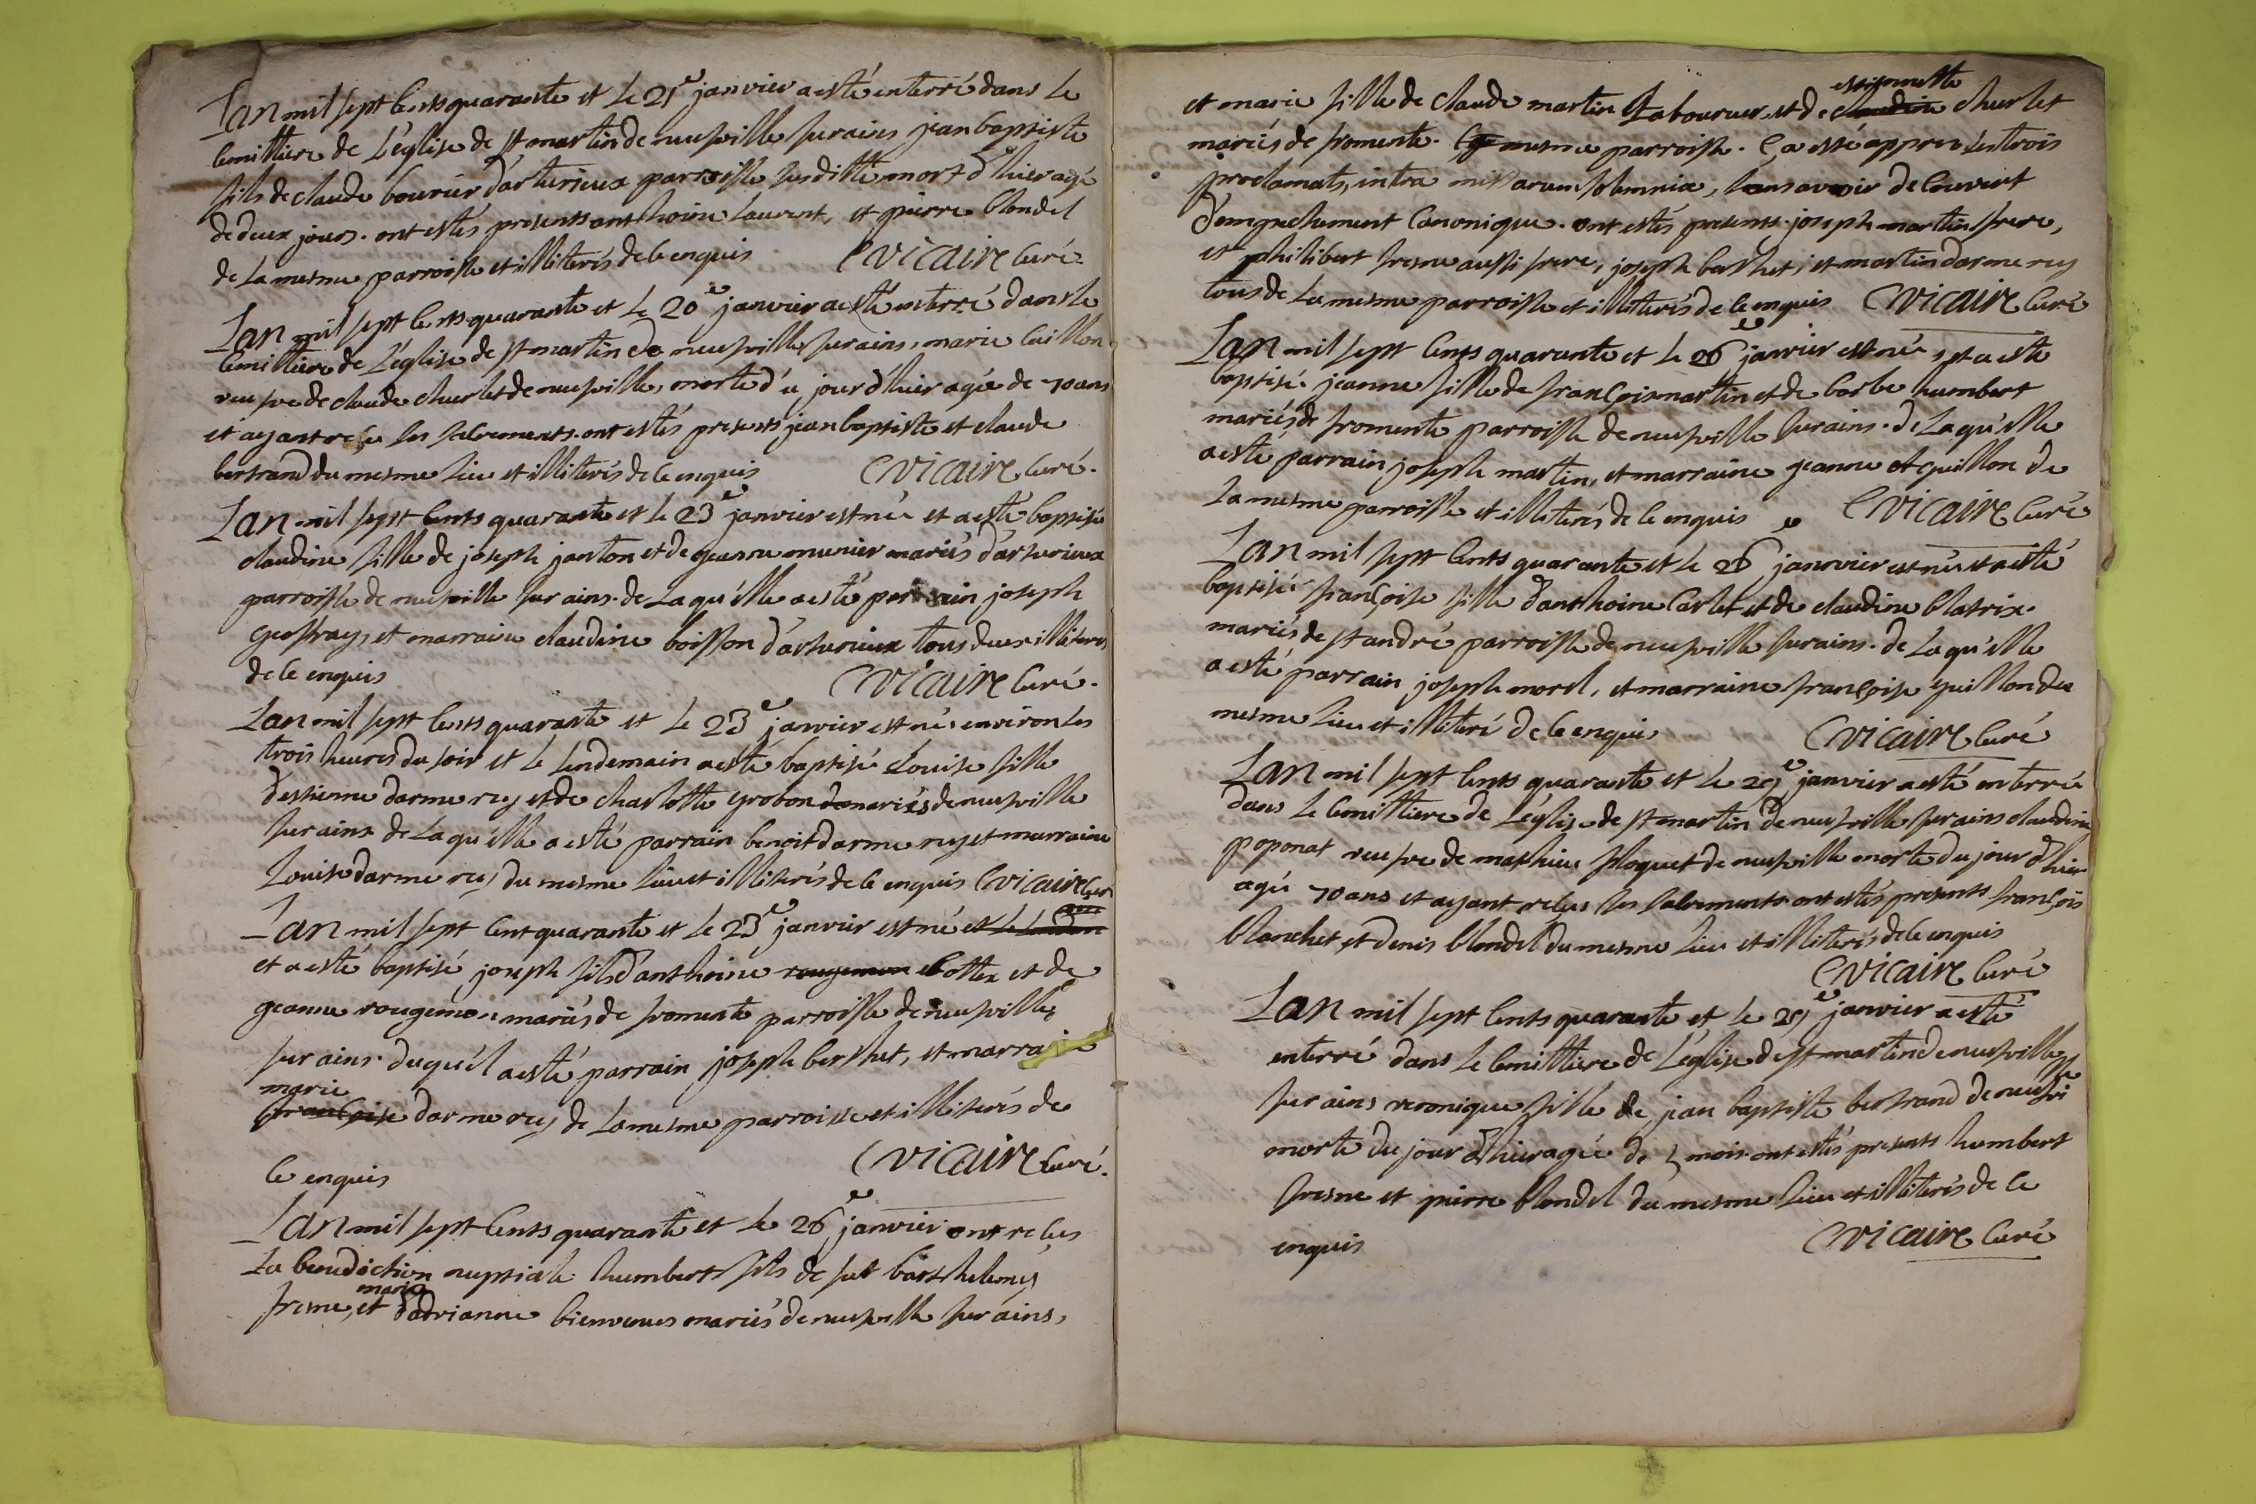 Lan mil sept Cents quarante et le 21e janvier a esté enterré dans le
Cemittiere de L'église de st martin de neufville sur ains jean baptiste
fils de claude bourier d'arturieux parroisse susditte mort d'hier agé
de deux jours. ont estés presents anthoine Laurent, et pierre blondel
de La mesme parroisse et illiterés de ce enquis Vicaire Curé.
Lan mil sept Cents quarante et le 20e janvier a esté enterré dans le
Cemittiere de L'église de st martin de neufville sur ains, marie Cuillon
veufve de claude churlet de neufville, morte d'u jour d'hier agée de 70 ans
et ayant reçu ses sacrements. ont estés presents jean baptiste et claude
bertrand du mesme lieu et illiterés de ce enquis Vicaire Curé.
Lan mil sept Cents quarante et le 23e janvier est née et a esté baptisée
claudine fille de joseph janton et de jeanne munier mariés d'arturieux
parroisse de neufville sur ains. de Laquélle a esté parrain joseph
geoffray, et marraine claudine boisson d'arturieux tous deux illiterés
de ce enquis Vicaire Curé.
Lan mil sept Cents quarante et le 23e janvier est née environ les
trois heures du soir et le lendemain a esté baptisé Louise fille
d'estienne darmerey et de charlotte grobon mariés de neufville
sur ains. de Laquélle a esté parrain benoit darmerey et marraine
Louise darmerey du mesme lieu et illiterés de ce enquis Vicaire Curé
Lan mil sept Cent quarante et le 23e janvier est né et le lendem
et a esté baptisé joseph fils d'anthoine rougemon Cottex et de
jeanne rougemon mariés de fromente parroisse de neufville
sur ains. duquél a esté parrain joseph berthet, et marraine
marie
francoise darmerey de La mesme parroisse et illiterés de
ce enquis Vicaire Curé.
Lan mil sept Cents quarante et le 26e janvier ont reçus
La benediction nuptiale humbert fils de fut barthelemy
marie
fresne, et d'adrianne bienvenus mariés de neufville sur ains,
estiennette
et marie fille de claude martin Laboureur et de claudine churlet
mariés de fromente. mesme parroisse. Ça esté apprés les trois
proclamats, intra missarum solemnia, sans avoir découvert
d'empechement Canonique. ont estés presents joseph martin frere,
et philibert fresne aussi frere, joseph berthet, et martin darmerey
tous de La mesme parroisse et illiterés de ce enquis Vicaire Curé
Lan mil sept Cents quarante et le 26e janvier est née, et a esté
baptisée jeanne fille de françois martin et de barbe humbert
mariés de fromente parroisse de neufville sur ains. de Laquélle
a esté parrain joseph martin, et marraine jeanne guillon de
La mesme parroisse et illiterés de ce enquis Vicaire Curé
Lan mil sept Cents quarante et le 26e janvier est née et a esté
baptisée françoise fille d'anthoine Carlet et de claudine blatrix
mariés de st andré parroisse de neufville sur ains. de Laquélle
a esté parrain joseph morel, et marraine françoise guillon du
mesme lieu et illiteré de ce enquis Vicaire Curé
Lan mil sept Cents quarante et le 29e janvier a esté enterré
dans le Cemittiere de L'église de st martin de neufville sur ains claudine
poponat veufve de mathieu ploquet de neufville morte du jour d'hier
agée 70 ans et ayant reçus ses sacrements ont estés presents françois
blanchet, et denis blondel du mesme lieu et illiterés de ce enquis
Vicaire Curé
Lan mil sept Cents quarante et le 29e janvier a esté
enterré dans le Cemittiere de L'église de st martin de neufville
sur ains veronique fille de jean baptiste bertrand de neufville
morte du jour d'hier agée de 5 mois. ont estés presents humbert
fresne et pierre blondel du mesme lieu et illiterés de ce
enquis Vicaire Curé